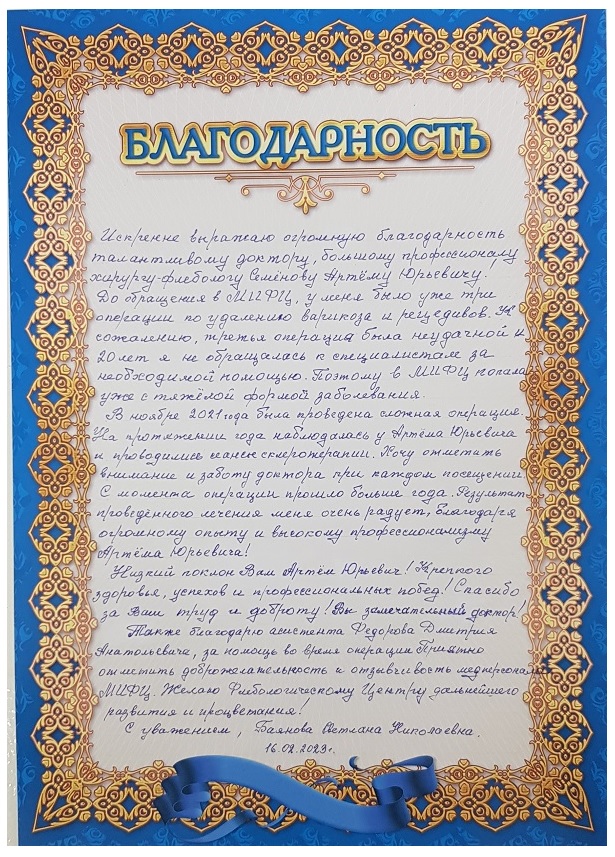 БЛАГОДАРНОСТЬ
Искренне выражаю огромную благодарность
талантливому доктору, большому профессионалу
хирургу-флебологу Семёнову Артёму Юрьевичу!
До обращения в МИФЦ, у меня было уже три
операции по удалению варикоза и рецедивов. К
сожалению, третья операция была неудачной и
20 лет я не обращалась к специалистам за
необходимой помощью. Поэтому в МИФЦ попала
уже с тяжёлой формой заболевания.
В ноябре 2021 года была проведена сложная операция.
На протяжении года наблюдалась у Артёма Юрьевича
и проводились сеансы склеротерапии. Хочу отметить
внимание и заботу доктора при каждом посещении.
С момента операции прошло больше года. Результат
проведённого лечения меня очень радует, благодаря
огромному опыту и высокому профессионализму
Артёма Юрьевича!
Низкий поклон Вам Артём Юрьевич! Крепкого
здоровья, успехов и профессиональных побед! Спасибо
за Ваш труд и доброту! Вы замечательный доктор!
Также благодарю асистента Федорова Дмитрия
Анатольевича, за помощь во время операции. Приятно
отметить доброжелательность и отзывчивость медперсонала
МИФЦ. Желаю Флебологическому Центру дальнейшего
развития и процветания!
С уважением, Баянова Светлана Николаевна.
16.02.2023г.